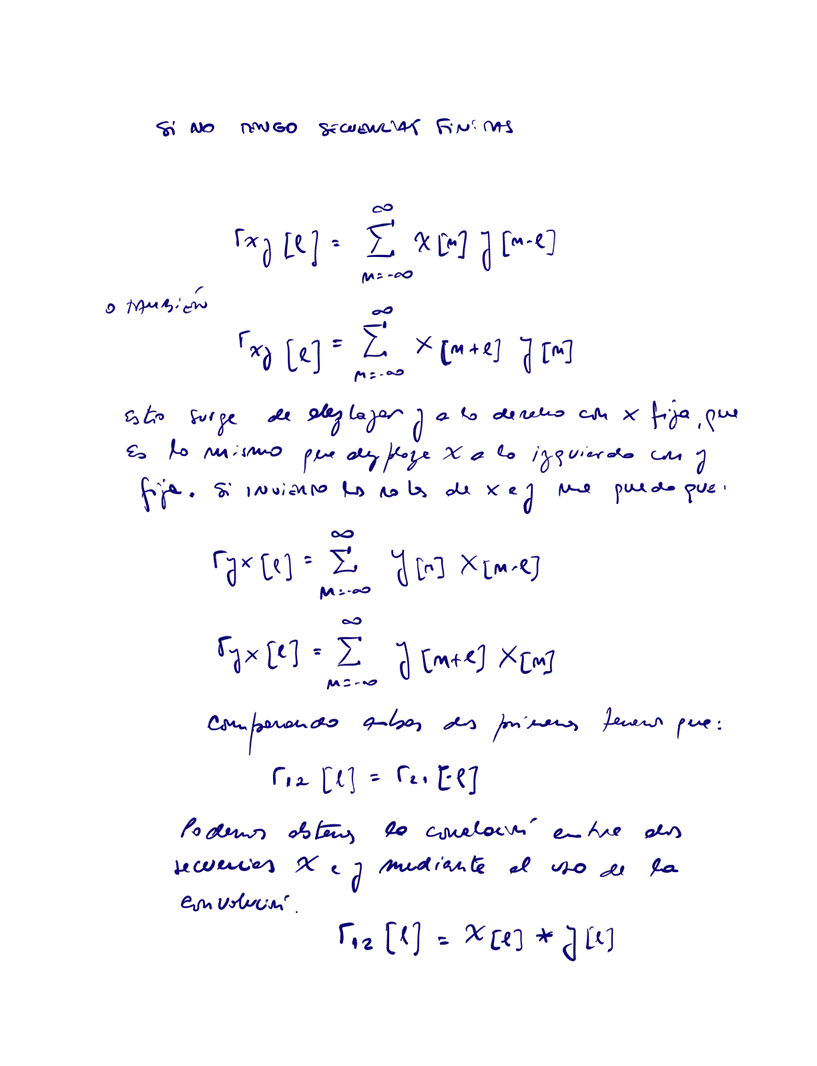 Si NO TENGO SECUENCIAS FINITAS
rxy [l] = ∑_{n=-∞}^{∞} x[n] y[n-l]
o TAMBIÉN
rxy [l] = ∑_{n=-∞}^{∞} x[n+l] y[n]
Esto surge de desplazar y a la derecha con x fija, que
Es lo mismo que desplaze x a la izquierda con y
fija. Si invierto los roles de x e y me queda que:
ryx [l] = ∑_{n=-∞}^{∞} y[n] x[n-l]
ryx [l] = ∑_{n=-∞}^{∞} y[n+l] x[n]
Comparando ambas dos primeras tenemos que:
r12 [l] = r21 [-l]
Podemos obtener la correlación entre dos
secuencias x e y mediante el uso de la
convolución.
r12 [l] = x[l] * y[l]